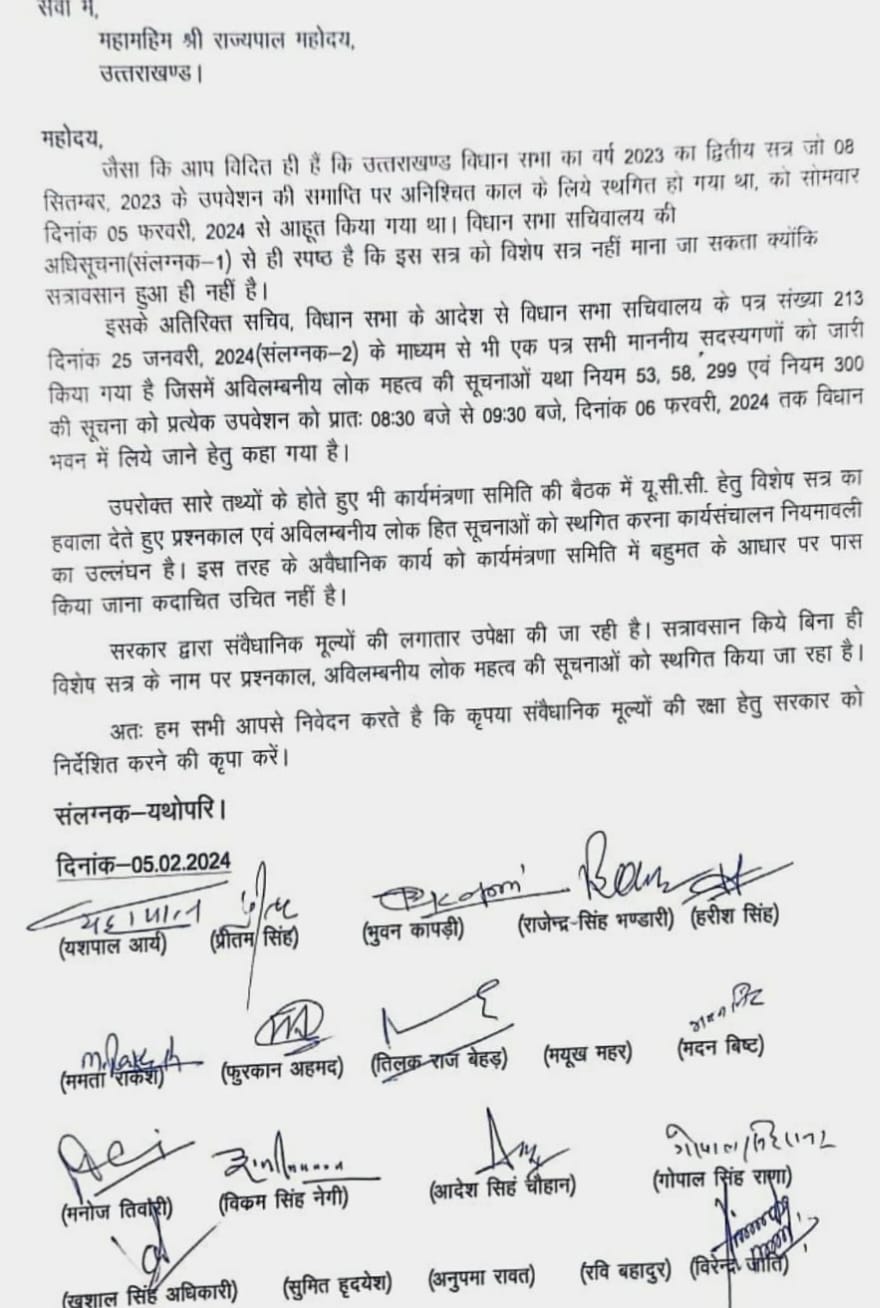 सेवा में,
महामहिम श्री राज्यपाल महोदय,
उत्तराखण्ड।
महोदय,
जैसा कि आप विदित ही हैं कि उत्तराखण्ड विधान सभा का वर्ष 2023 का द्वितीय सत्र जो 08
सितम्बर, 2023 के उपवेशन की समाप्ति पर अनिश्चित काल के लिये स्थगित हो गया था, को सोमवार
दिनांक 05 फरवरी, 2024 से आहूत किया गया था। विधान सभा सचिवालय की
अधिसूचना(संलग्नक–1) से ही स्पष्ठ है कि इस सत्र को विशेष सत्र नहीं माना जा सकता क्योंकि
सत्रावसान हुआ ही नहीं है।
इसके अतिरिक्त सचिव, विधान सभा के आदेश से विधान सभा सचिवालय के पत्र संख्या 213
दिनांक 25 जनवरी, 2024(संलग्नक–2) के माध्यम से भी एक पत्र सभी माननीय सदस्यगणों को जारी
किया गया है जिसमें अविलम्बनीय लोक महत्व की सूचनाओं यथा नियम 53, 58, 299 एवं नियम 300
की सूचना को प्रत्येक उपवेशन को प्रातः 08:30 बजे से 09:30 बजे, दिनांक 06 फरवरी, 2024 तक विधान
भवन में लिये जाने हेतु कहा गया है।
उपरोक्त सारे तथ्यों के होते हुए भी कार्यमंत्रणा समिति की बैठक में यू.सी.सी. हेतु विशेष सत्र का
हवाला देते हुए प्रश्नकाल एवं अविलम्बनीय लोक हित सूचनाओं को स्थगित करना कार्यसंचालन नियमावली
का उल्लंघन है। इस तरह के अवैधानिक कार्य को कार्यमंत्रणा समिति में बहुमत के आधार पर पास
किया जाना कदाचित उचित नहीं है।
सरकार द्वारा संवैधानिक मूल्यों की लगातार उपेक्षा की जा रही है। सत्रावसान किये बिना ही
विशेष सत्र के नाम पर प्रश्नकाल, अविलम्बनीय लोक महत्व की सूचनाओं को स्थगित किया जा रहा है।
अतः हम सभी आपसे निवेदन करते है कि कृपया संवैधानिक मूल्यों की रक्षा हेतु सरकार को
निर्देशित करने की कृपा करें।
संलग्नक–यथोपरि।
दिनांक–05.02.2024
यशपाल
(यशपाल आर्य) (प्रीतम सिंह) (भुवन कापड़ी) (राजेन्द्र सिंह भण्डारी) (हरीश सिंह)
(ममता राकेश) (फुरकान अहमद) (तिलक राज बेहड़) (मयूख महर) (मदन बिष्ट)
(मनोज तिवारी) (विकम सिंह नेगी) (आदेश सिहं चौहान) (गोपाल सिंह राणा)
(खुशाल सिंह अधिकारी) (सुमित हृदयेश) (अनुपमा रावत) (रवि बहादुर) (विरेन्द्र जाति)